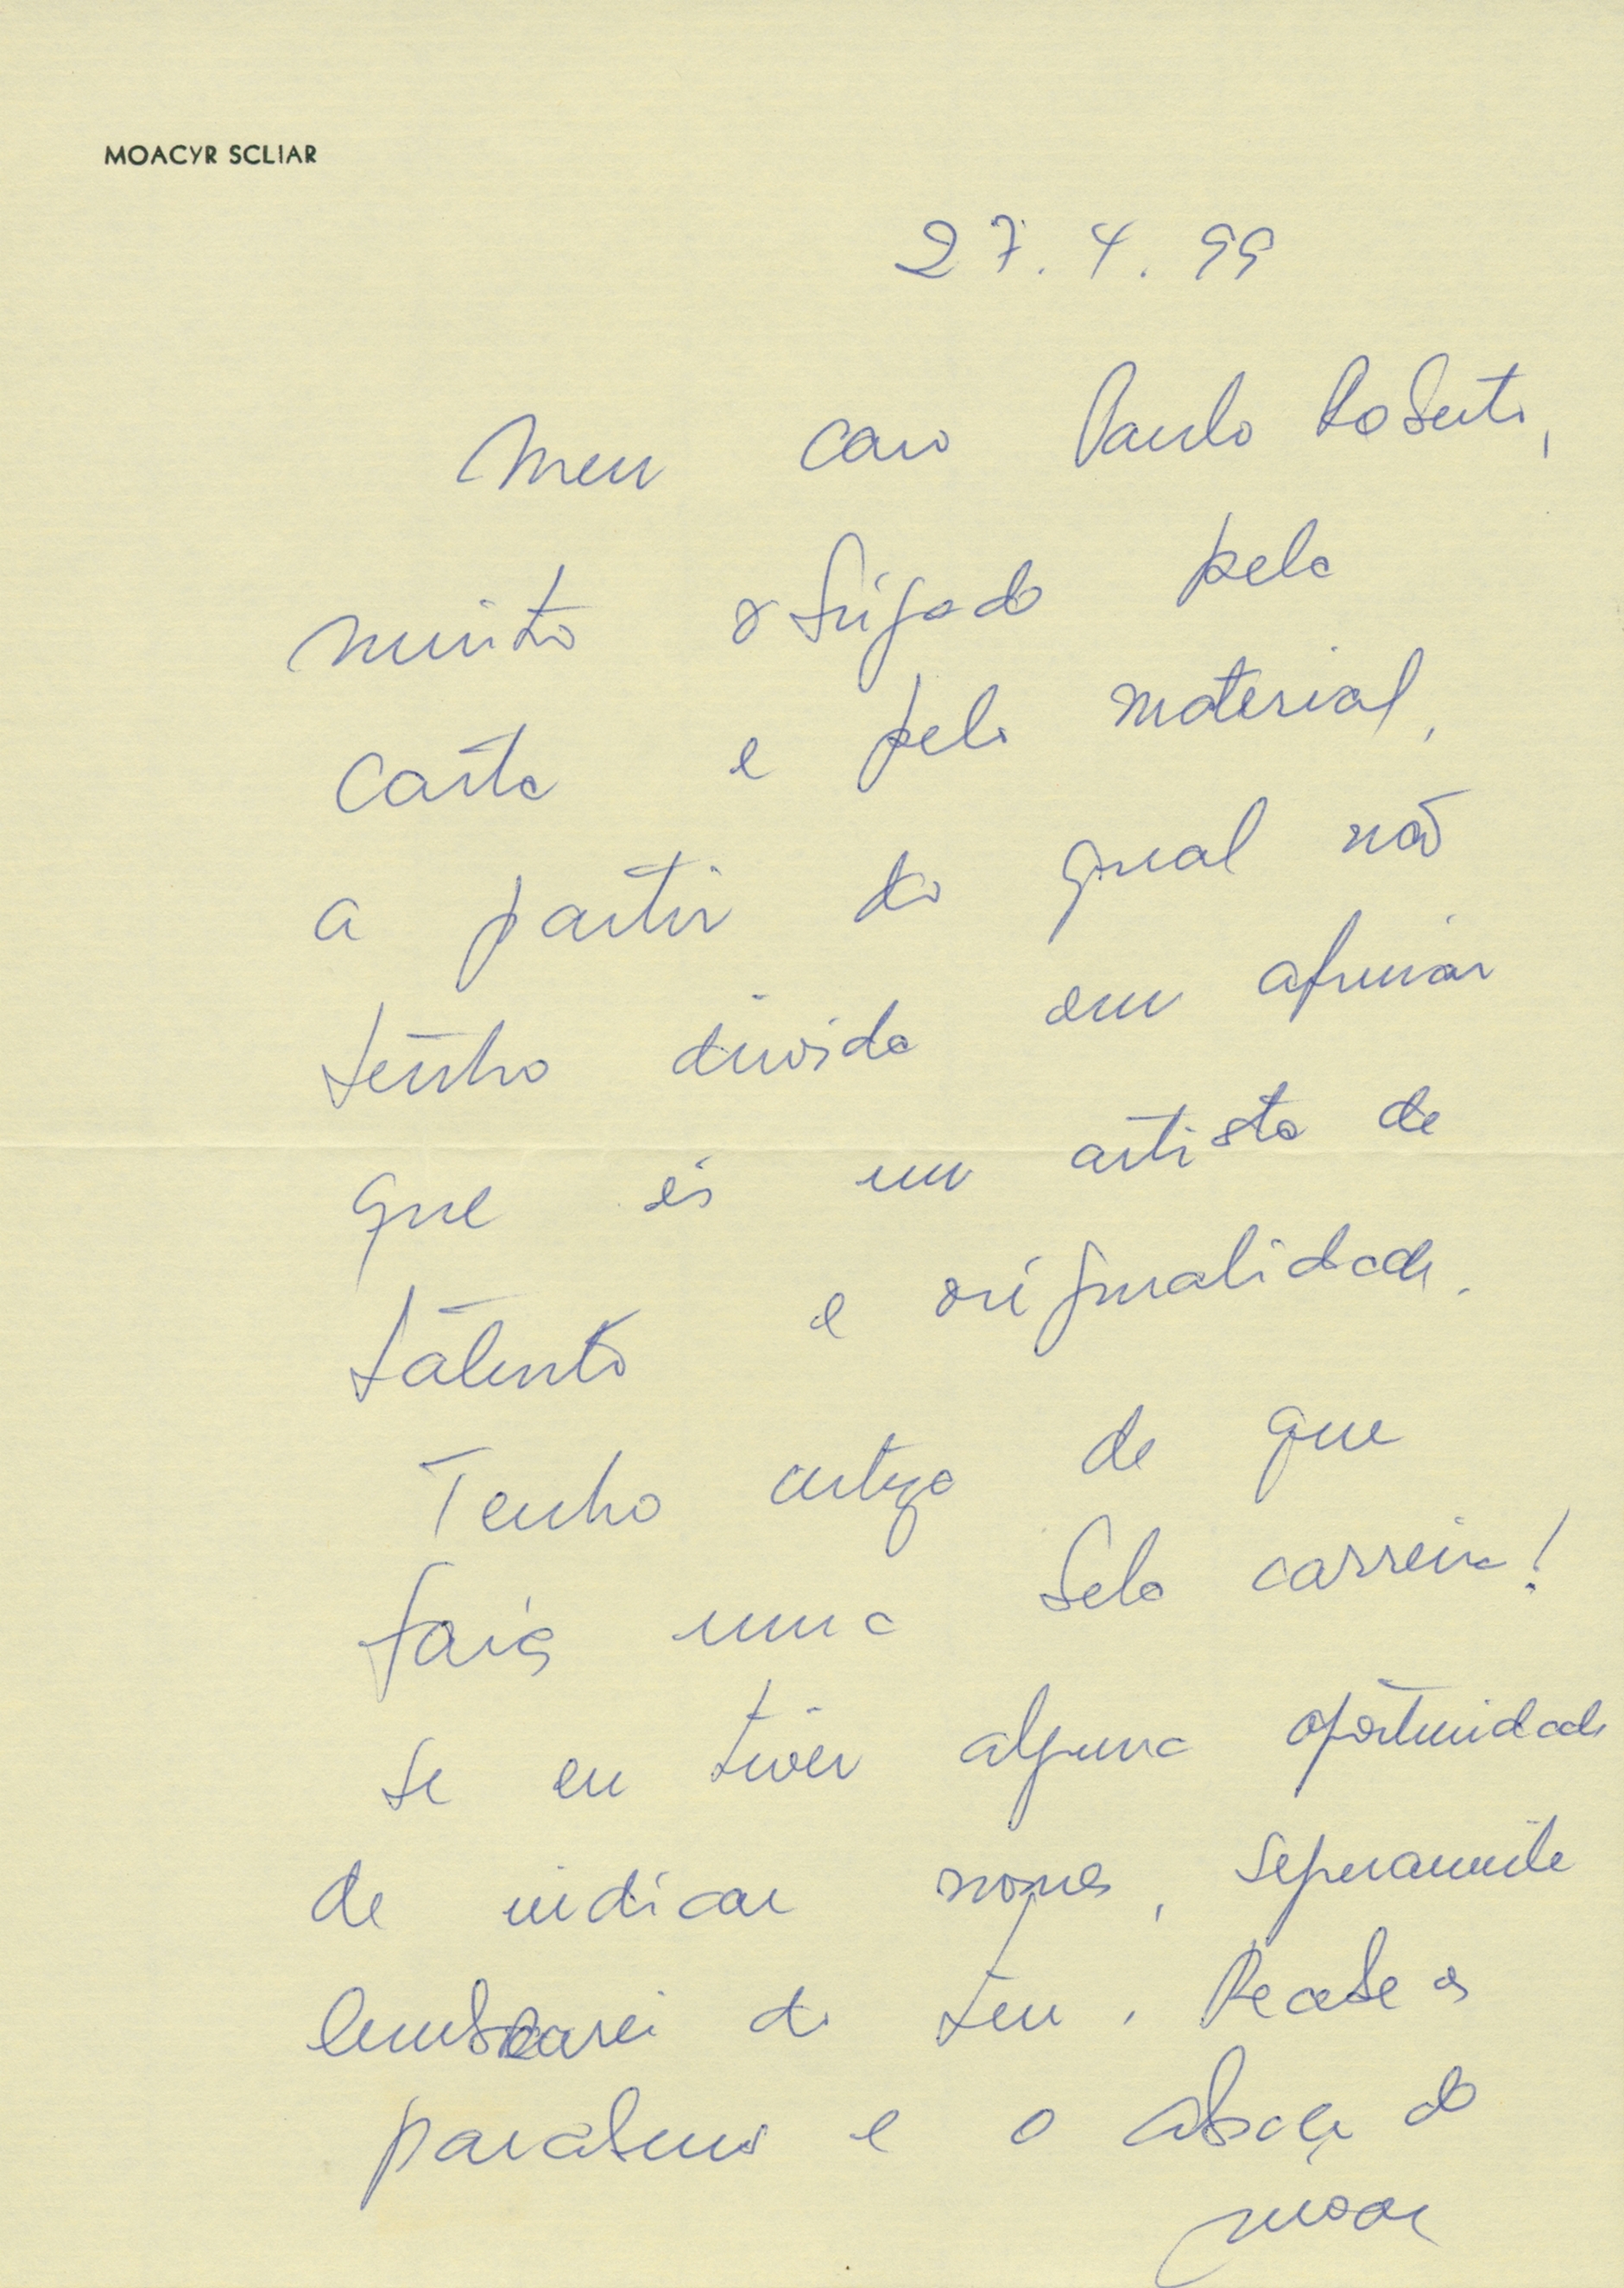 MOACYR SCLIAR
27.4.99
Meu caro Paulo Roberto,
muito obrigado pela
carta e pelo material,
a partir do qual não
tenho dúvida em afirmar
que és um artista de
talento e originalidade.
Tenho certeza de que
farás uma bela carreira!
Se eu tiver alguma oportunidade
de indicar nomes, seguramente
lembrarei do teu. Recebe os
parabens e o abraço do
Moac